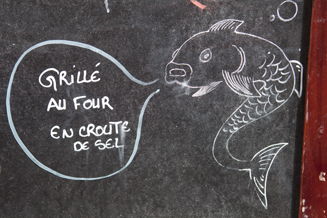 GRILLÉ
AU FOUR
EN CROUTE
DE SEL